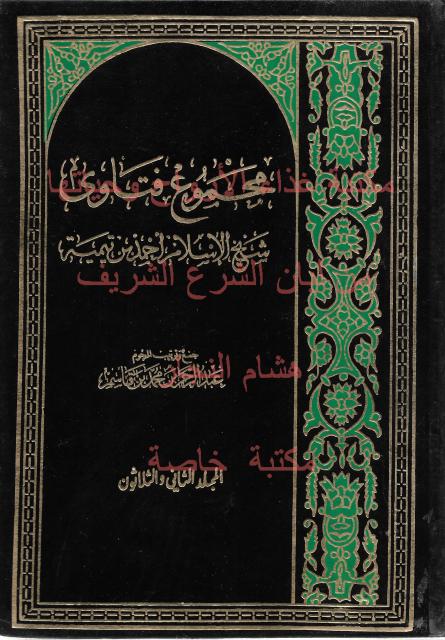 مجموع فتاوى
مكتبة غذاء الأرواح وحياتها
شيخ الإسلام أحمد بن تيمية
ميزان الشرع الشريف
جمع وترتيب المرحوم
هشام
عبد الرحمن بن محمد بن قاسم
مكتبة خاصة
المجلد الثاني والثلاثون